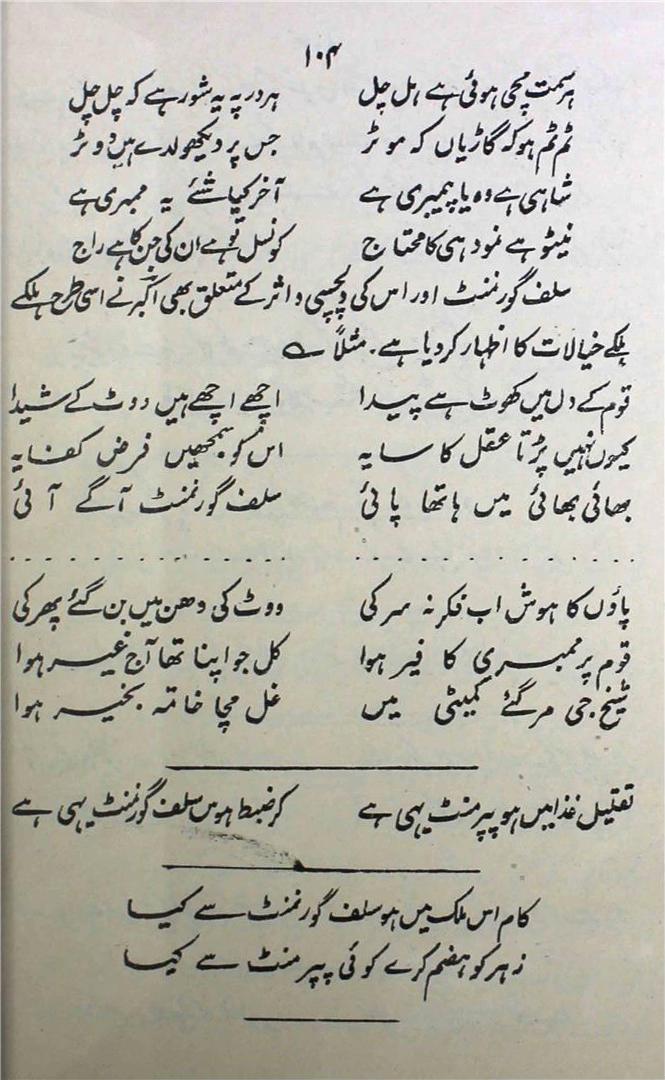 ۱۰۴
ہر سمت مچی ہوئی ہے ہل چل ہر در پہ یہ شور ہے کہ چل چل
ٹم ٹم ہو کہ گاڑیاں کہ موٹر جس پر دیکھو لدے ہیں ووٹر
شاہی ہے وہ یا پیمبری ہے آخر کیا شئے یہ ممبری ہے
نیٹو ہے نمود ہی کا محتاج کونسل تو ہے ان کی جن کا ہے راج
سلف گورنمنٹ اور اس کی دلچسپی و اثر کے متعلق بھی اکبر نے اسی طرح ہلکے
ہلکے خیالات کا اظہار کر دیا ہے۔ مثلاً ے
قوم کے دل میں کھوٹ ہے پیدا اچھے اچھے ہیں ووٹ کے شیدا
کیوں نہیں پڑتا عقل کا سایہ اس کو سمجھیں فرض کفایہ
بھائی بھائی میں ہاتھا پائی سلف گورنمنٹ آگے آئی
پاؤں کا ہوش اب فکر نہ سر کی ووٹ کی دھن میں بن گئے پھرکی
قوم پر ممبری کا فیر ہوا کل جو اپنا تھا آج غیر ہوا
شیخ جی مر گئے کمیٹی میں غل مچا خاتمہ بخیر ہوا
تقلیل غذا میں ہو پپرمنٹ یہی ہے کر ضبط ہوس سلف گورنمنٹ یہی ہے
کام اس ملک میں ہو سلف گورنمنٹ سے کیا
زہر کو ہضم کرے کوئی پپرمنٹ سے کیا